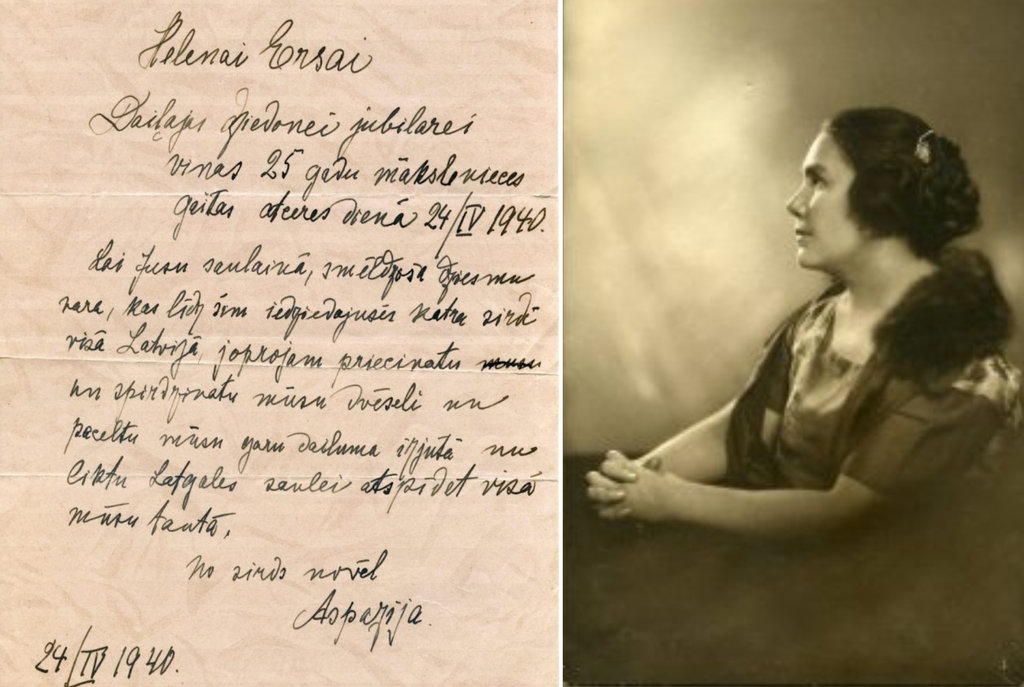 Helenai Ersai
Daiļajai dziedonei jubilarei
viņas 25 gadu mākslenieces
gaitas atceres dienā 24/IV 1940.
Lai Jūsu saulainā, smeldzošā dziesmu
vara, kas līdz šim iedziedājusēs katra sirdī
visā Latvijā, joprojām priecinatu
un spirdzinatu mūsu dvēseli un
paceltu mūsu garu dailuma izjutā un
liktu Latgales saulei atspīdet visā
mūsu tautā,
No sirds novēl
Aspazija.
24/IV 1940.